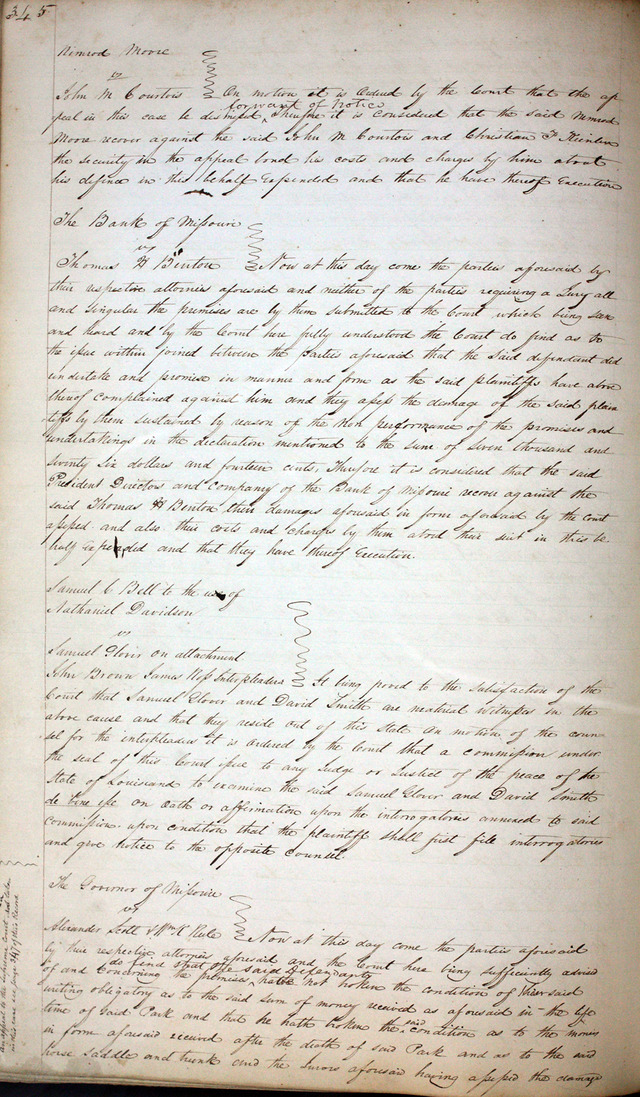 345
Nimrod Moore
vs
John M Courtois On motion it is Ordered by the Court that the ap
forwant of Notice
peal in this case be dismissed, Therefore it is considered that the said Nimrod
Moore recover against the said John M Courtois and Christian F
the security in the appeal bond his costs and charges by him about
his defince in this behalf Expended and that he have thereof Execution
The Bank of Missouri
vs
Thomas H Benton Now at this day come the parties aforesaid by
their respective attornies aforesaid and neither of the parties requiring a Jury all
and singular the premises are by them submitted to the Court which being seen
and heard and by the Court here fully understood the Court do find as to
the issue within joined between the parties aforesaid that the said defendant did
undertake and promise in manner and form as the said plaintiffs have above
thereof complained against him and they assess the damage of the said plain
tiffs by them sustained by reason of the Non performance of the promises and
undertakings in the declaration mentioned to the sum of seven thousand and
seventy six dollars and fourteen cents, Therefore it is considered that the said
President Directors and company of the Bank of Missouri recover against the
said Thomas H Benton their damages aforesaid in form aforesaid by the court
assessed and also their costs and charges by them about their suit in this be
half Expended and that they have thereof Execution.
Samuel C Bell to the use of
Nathaniel Davidson
vs
Samuel Glover on attachment
John Brown James Ross Interpleaders It being proved to the satisfaction of the
Court that Samuel Glover and David Smith are material witnesses in the
above cause and that they reside out of this State on motion of the coun
sel for the interpleader it is ordered by the Court that a commission under
the seal of this Court issue to any Judge or Justice of the peace of the
State of Louisiana to examine the said Samuel Glover and David Smith
de bene esse on oath or affirmation upon the interrogatories annexed to said
commission upon condition that the plaintiff shall first file interrogatories
and give notice to the opposite counsel.
The Governor of Missouri
vs
Alexander Scott & Wm K Rule Now at this day come the parties aforesaid
by their respective attornies aforesaid and the Court here being sufficiently advised
do find that the said Defendants
of and concerning the premises, hath not broken the condition of their said
writing obligatory as to the said sum of money received as aforesaid in the life
time of said Park and that he hath broken the said condition as to the monies
in form aforesaid received after the death of said Park and as to the said
horse saddle and trunk and the Jurors aforesaid having assessed the damage
an appeal to the supreme Court
this case see page of this Record